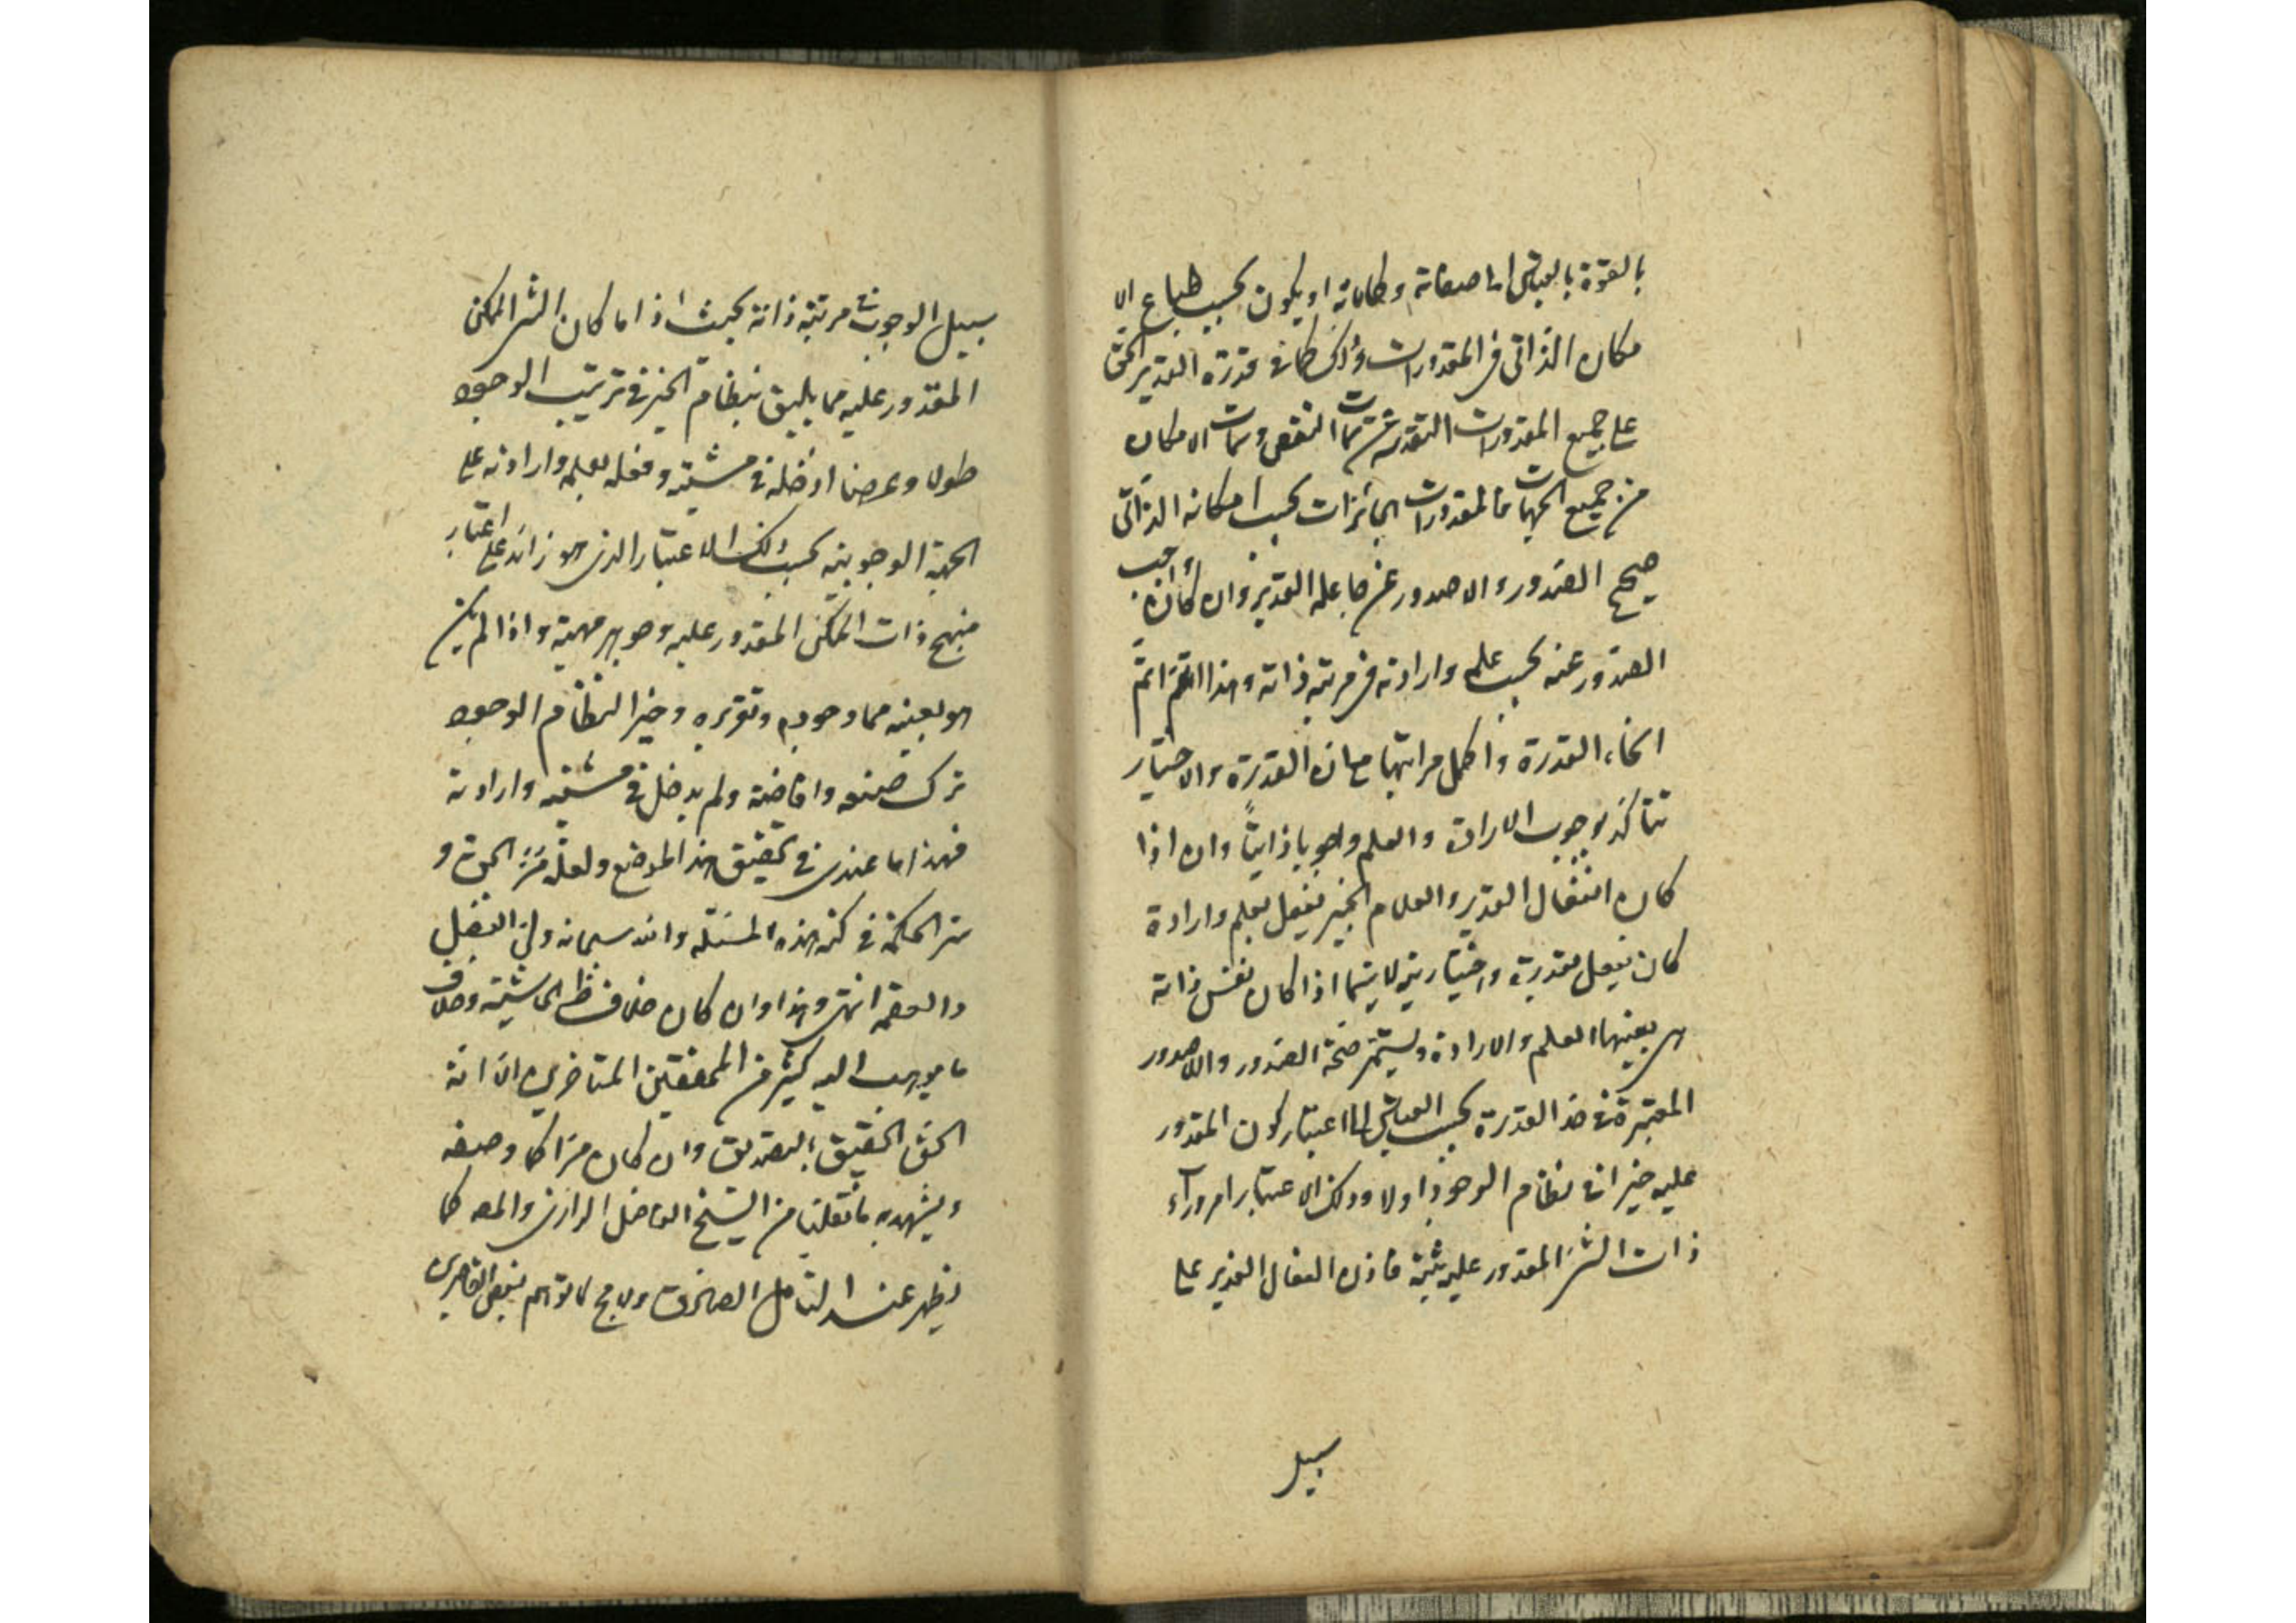 بالقوة بالقياس الى صفاته وكمالاته او يكون بحسب طباع الا
مكان الذاتى فى المقدورات وذلك كما فى قدرة القدير الحق
على جميع المقدورات المتقدس عن سمات النقص وسمات الامكان
من جميع الجهات فالمقدورات الجائزات بحسب امكانه الذاتى
صحيح الصدور واللاصدور عن جاعله القدير وان كان واجب
الصدور عنه بحسب علمه وارادته فى مرتبة ذاته وهذا القسم اتم
انحاء القدرة واكمل مراتبها مع ان القدرة والاختيار
تتأكد بوجوب الارادة والعلم وجوبا ذاتيا وان اذا
كان الفعال القدير والعلام الخبير يفعل بعلم وارادة
كان يفعل بقدرة واختيارية لا سيما اذا كان نفس ذاته
هى بعينها العلم والارادة ويستمر صحة الصدور واللاصدور
المعتبرة فى حد القدرة بحسب القياس الى اعتبار كون المقدور
عليه خيرا فى نظام الوجود اولا وذلك الاعتبار امر وراء
ذات الشر المقدور عليه فاذن الفعال القدير على
سبيل
سبيل الوجوب فى مرتبة ذاته بحيث اذا ما كان الشر الممكن
المقدور عليه مما يليق بنظام الخير فى ترتيب الوجود
طولا وعرضا ادخله فى مشيته وفعله بعلمه وارادته على
الجهة الوجوبية بحسب ذلك الاعتبار الذى هو زائد على اعتبار
منهج ذات الممكن المقدور عليه وجوهر مهيته واذا لم يكن
هو بعينه مما وجوده وتقرره وخير النظام الوجود
ترك صنعه وافاضته ولم يدخل فى مشيته وارادته
فهذا ما عندى فى تحقيق هذا الموضع ولعله مر الحق و
سر الحكمة فى كنه هذه المسئلة والله سبحانه ولى الفضل
والعصمة انتهى وهذا وان كان خلاف ظ الحاشية وخلاف
ما يذهب اليه كثير من المحققين المتاخرين الا انه
الحق الحقيق بالتصديق وان كان مرا كما وصفه
ويشهد به ما نقلنا من الشيخ الفاضل الرازى والمص كما
يظهر عند التامل الصادق ولا مح لا توهم بعض القاصرين